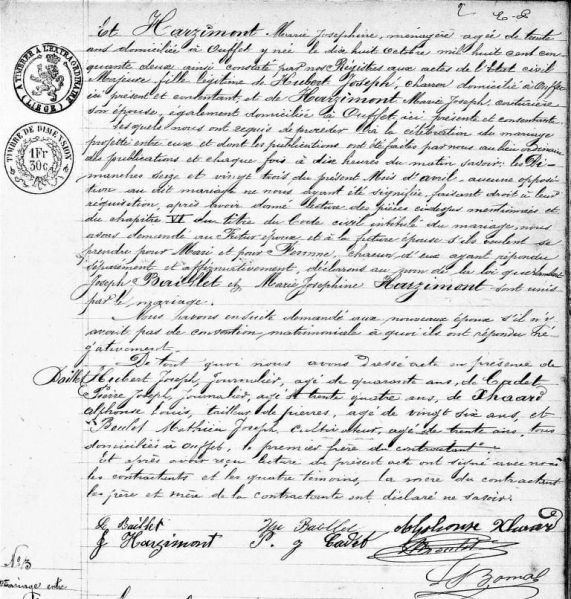 Et Harzimont Marie Josephine, ménagère agée de trente
ans domiciliée à Ouffet y née le dix huit Octobre mil huit cent cin
quante deux ainsi constaté par nos Régistres aux actes de l'Etat civil
Majeure fille légitime de Hubert Joseph, charon domicilié à Ouffet
ici présent et consentant, et de Harzimont Marie Joseph,
son épouse, également domiciliée à Ouffet, ici présente et consentante
Lesquels nous ont requis de proceder à la célébration du mariage
projetté entre eux et dont les publications ont été faites par nous au lieu
des publications et chaque fois à dix heures du matin savoir: les Di
manches seize et vingt trois du présent Mois d'avril. aucune opposi
tion au dit mariage ne nous ayant été signifiée, faisant droit à leur
réquisition, après avoir donné lecture des pièces ci-dessus mentionnées et
du chapitre VI du titre du Code civil intitulé du mariage, nous
avons demandé au Futur époux et à la future épouse s'ils veulent se
prendre pour Mari et pour Femme, chacun d'eux ayant répondu
séparément et affirmativement, déclarons au nom de la loi que
Joseph Baillet et Marie Josephine Harzimont sont unis
par le mariage.
Nous avons ensuite demandé aux nouveaux époux s'il n'y
avait pas de convention matrimoniale à quoi ils ont répondu né
gativement.
De tout quoi nous avons dressé acte en présence de
Baillet Hubert Joseph, journalier, agé de quarante ans, de Cadet
Pierre Joseph, journalier, agé de trente quatre ans, de
Alphonse Louis, tailleur de pierres, agé de vingt six ans, et
Boulot Mathieu Joseph, Cultivateur, agé de trente ans, tous
domiciliés à Ouffet, le premier frère du contractant
Et après avoir reçu lecture du présent acte ont signé avec nous
les contractants et les quatre témoins, la mère du contractant
les père et mère de la contractante ont déclaré ne savoir.
Baillet
Baillet
Alphonse
J Harzimont
P. J Cadet
Boulot
Bomal
N° 3
Mariage entre
A TIMBRER A L'EXTRAORDINAIRE
(LIEGE)
TIMBRE DE DIMENSION
1Fr
30c.